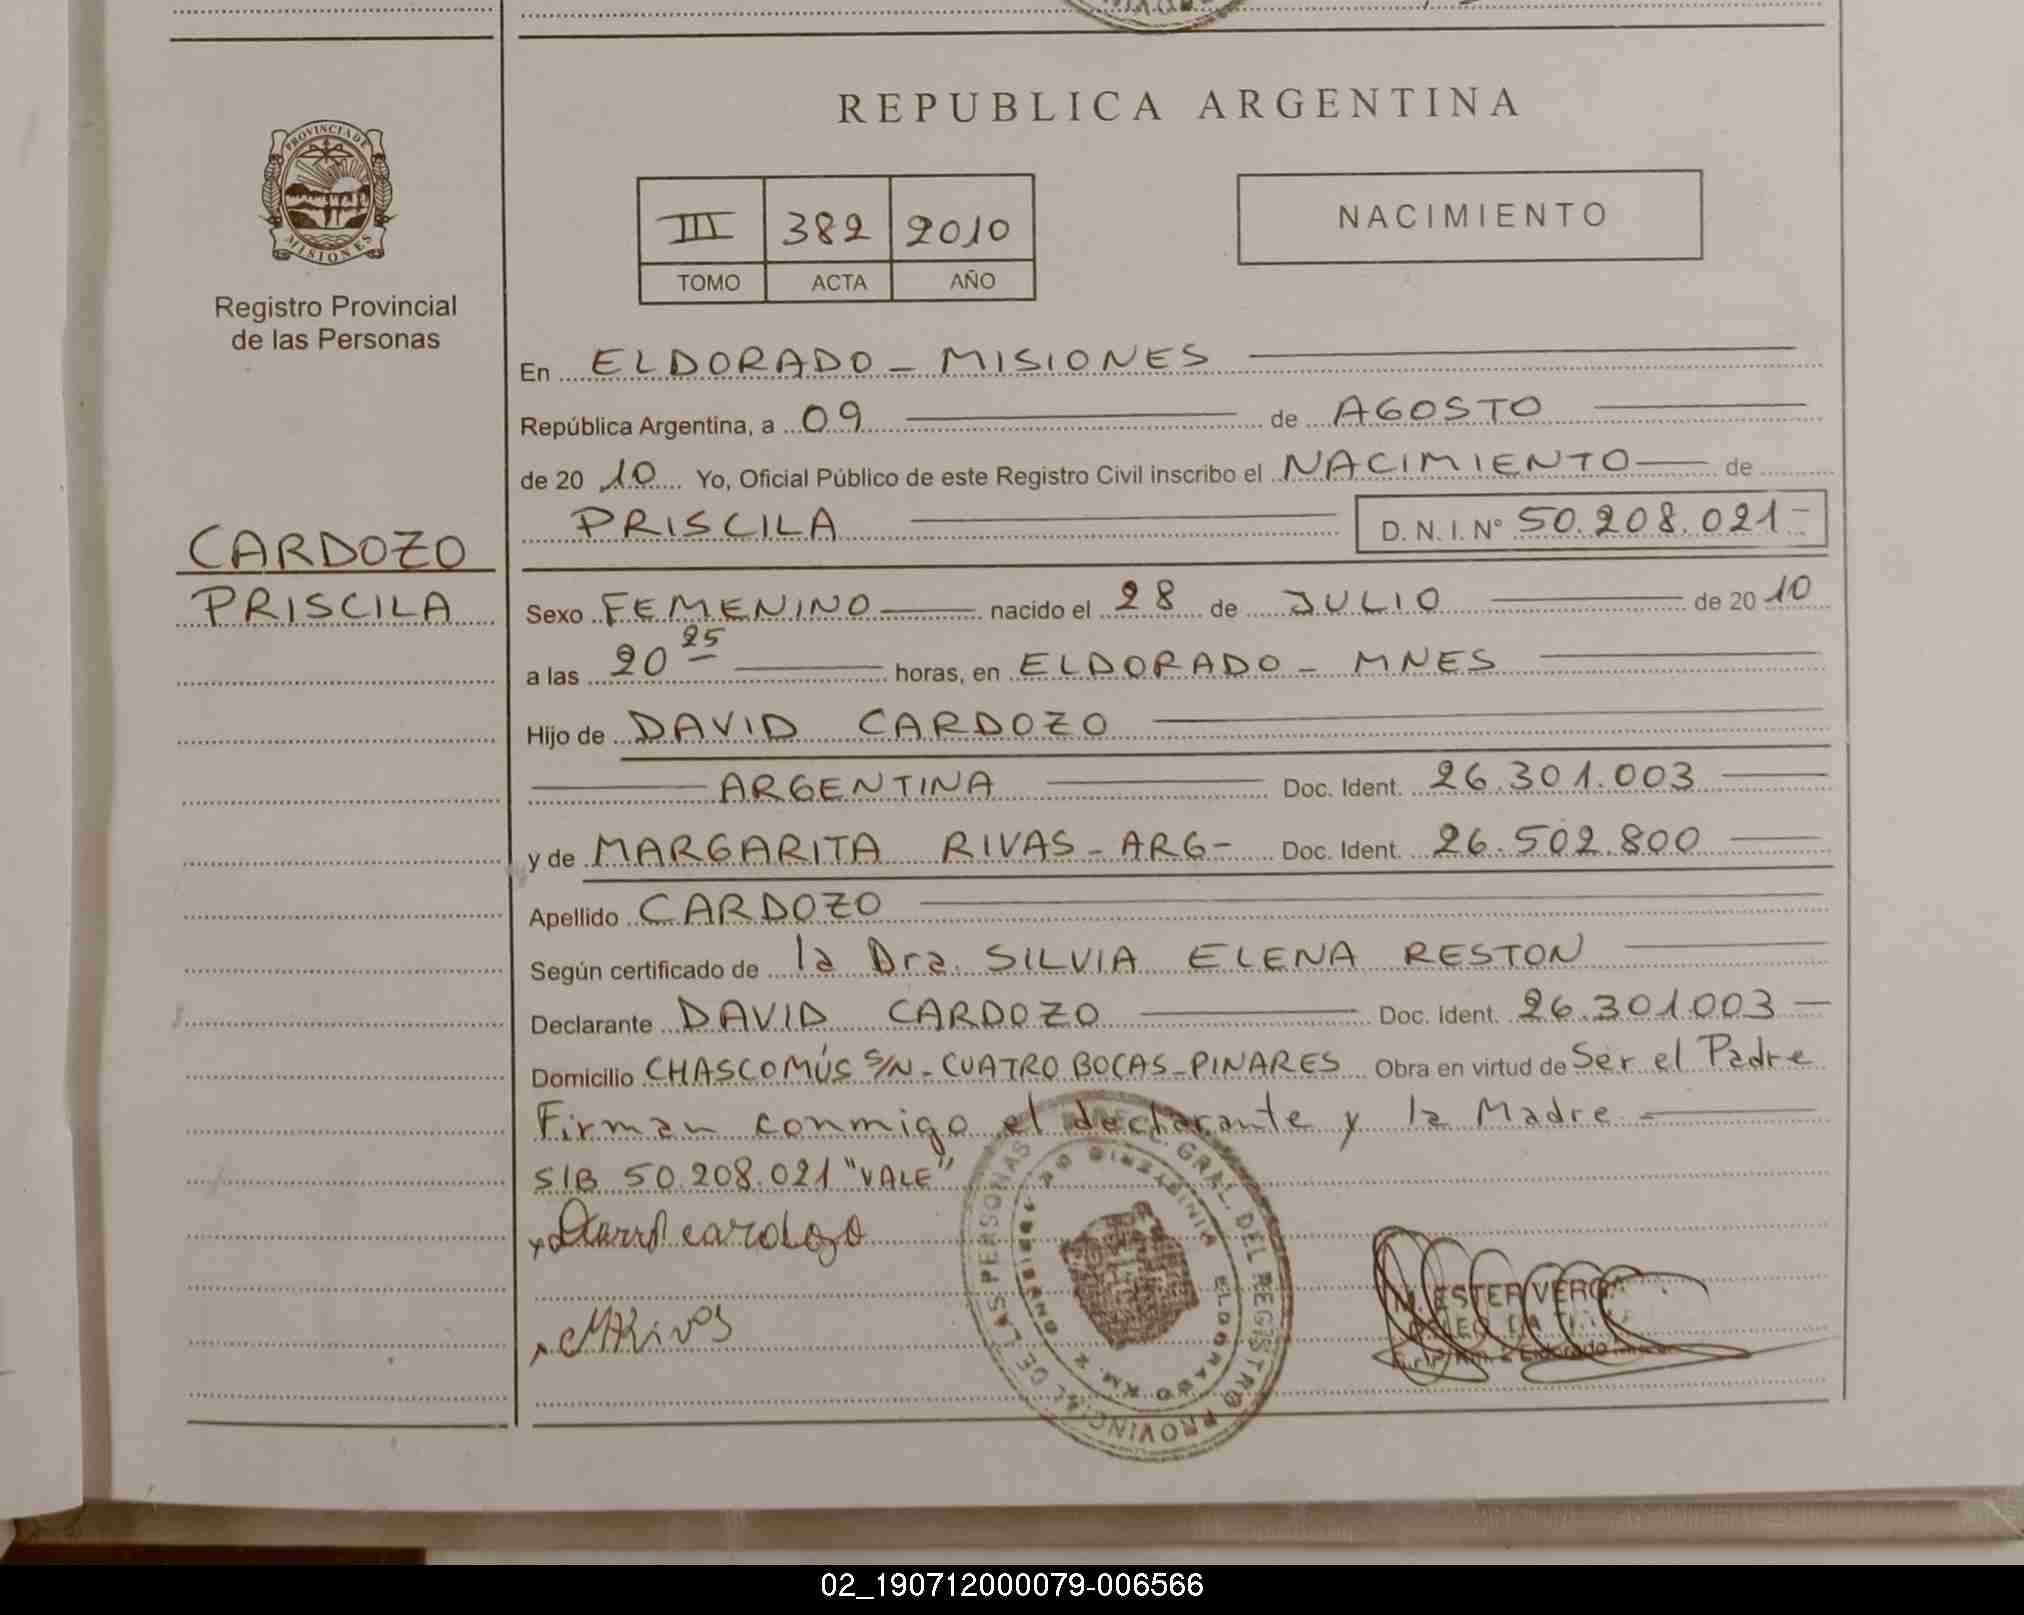 REPUBLICA ARGENTINA
PROVINCIA DE MISIONES
Registro Provincial
de las Personas
III 382 2010
TOMO ACTA AÑO
NACIMIENTO
En ELDORADO - MISIONES
República Argentina, a 09 de AGOSTO
de 20 10 Yo, Oficial Público de este Registro Civil inscribo el NACIMIENTO de
PRISCILA D. N. I. N° 50.208.021-
CARDOZO
PRISCILA
Sexo FEMENINO nacido el 28 de JULIO de 20 10
a las 20 25 horas, en ELDORADO - MNES
Hijo de DAVID CARDOZO
ARGENTINA Doc. Ident. 26.301.003
y de MARGARITA RIVAS - ARG- Doc. Ident. 26.502.800
Apellido CARDOZO
Según certificado de la Dra. SILVIA ELENA RESTON
Declarante DAVID CARDOZO Doc. Ident. 26.301.003
Domicilio CHASCOMÚS S/N - CUATRO BOCAS - PINARES Obra en virtud de Ser el Padre
Firman conmigo el declarante y la Madre
S/B 50.208.021 "VALE"
David cardozo
MRivas
GRAL. DEL REGISTRO PROVINCIAL DE LAS PERSONAS
ELDORADO KM. 2
M. ESTER
Eldorado
02_190712000079-006566